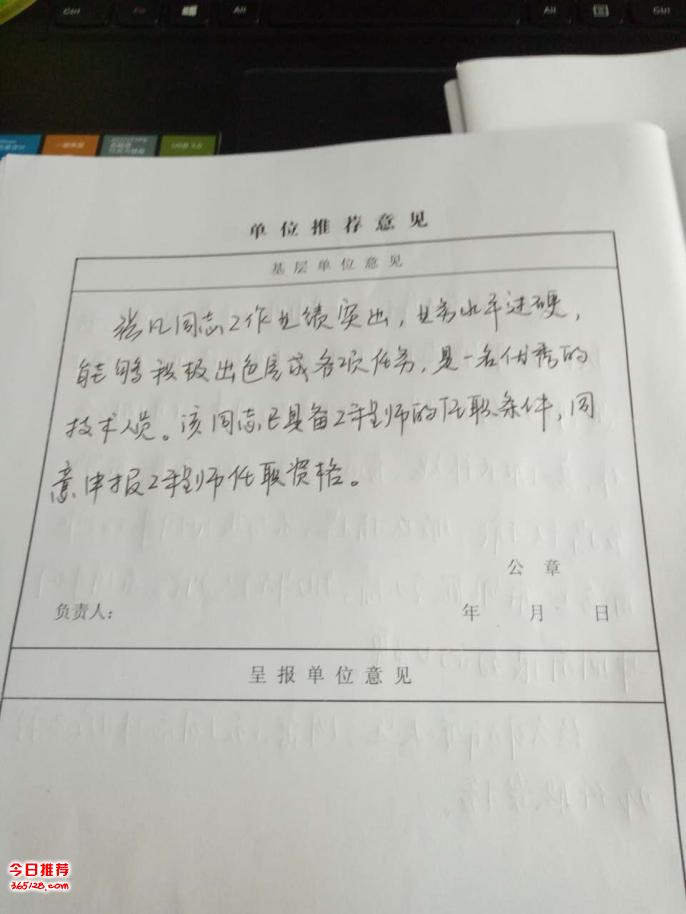 Ctrl
Fn
Alt
Alt
Ctrl
USB 3.0
单位推荐意见
基层单位意见
张凡同志工作业绩突出，业务水平过硬，
能够积极出色完成各项任务，是一名优秀的
技术人员。该同志已具备工程师的任职条件，同
意申报工程师任职资格。
公章
负责人： 年 月 日
呈报单位意见
今日推荐
365128.com